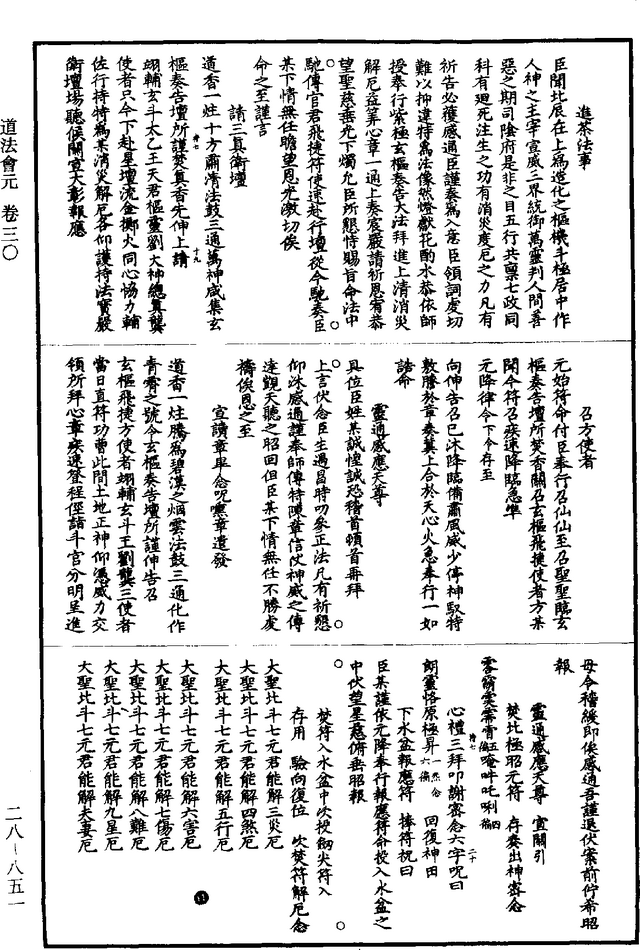 道法會元　卷三〇
進茶法事
臣聞北辰在上為造化之樞機斗極居中作
人神之主宰宣威三界統御萬靈判人間善
惡之期司陰府是非之目五行共稟七政同
科有廻死注生之功有消災度厄之力凡有
祈告必獲感通臣謹奏為入意臣領詞虔切
難以抑違特為法像然燈獻花酌水恭依師
授奉行紫極玄樞奏告大法拜進上清消災
解厄益筭心章一通上奏宸嚴請祈恩宥恭
望聖慈垂光下燭允臣所懇特賜旨命法中
馳傳官君飛捷符使速赴行壇從今馳奏臣
某下情無任瞻望恩光激切俟
命之至謹言
請三真衛壇
道香一炷十方肅清法鼓三通萬神咸集玄
樞奏告壇所謹焚真香先伸上請
翊輔玄斗太乙王天君樞靈劉大神總真龔
使者六今下赴星壇流金擲火同心協力輔
佐行持特為某消災解厄各仰護持法寶嚴
衛壇場聽候關宣大彰報應
召方使者
元始符命付臣奉行召仙仙至召聖聖臨玄
樞奏告壇所焚香關召玄樞飛捷使者方某
聞今符召疾速降臨急準
元降律令下令存至
向伸告召已沐降臨備肅風威少停神馭特
敷騰於章奏冀上合於天心火急奉行一如
誥命
靈通感應天尊
具位臣姓某誠惶誠恐稽首頓首再拜
上言伏念臣生遇昌時叨參正法凡有祈懇
仰沐感通謹奉師傳特陳章信仗神威之傳
達覬天聽之昭回但臣某下情無任不勝虔
禱俟恩之至
宣讀章畢念呪噀章遣發
道香一炷騰為碧漢之烟雲法鼓三通化作
青霄之號令玄樞奏告壇所謹伸告召
玄樞飛捷方使者翊輔玄斗王劉龔三使者
當日直符功曹此間土地正神仰憑威力交
領所拜心章疾速登程徑詣斗宮分明呈進
毋令稽緩即俟感通吾謹退伏案前佇希昭
報
靈通感應天尊　宣關引
焚北極昭元符　存奏出神密念
心禮三拜叩謝密念六字呪曰
朗靈恪原極昇　回復神田
下水盆報應符　捧符祝曰
臣某謹依元降奉行報應符命投入水盆之
中伏望星慈俯垂昭報
焚符入水盆中次投劒尖符入
存用　驗向復位　次焚符解厄念
大聖北斗七元君能解三災厄
大聖北斗七元君能解四煞厄
大聖北斗七元君能解五行厄
大聖北斗七元君能解六害厄
大聖北斗七元君能解七傷厄
大聖北斗七元君能解八難厄
大聖北斗七元君能解九星厄
大聖北斗七元君能解夫妻厄
二八－八五一